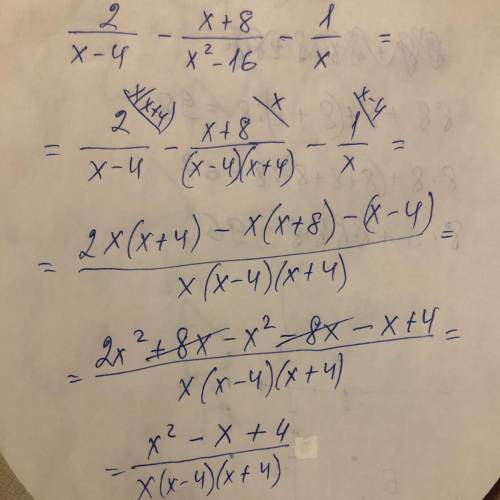 2/(x-4) - (x+8)/(x²-16) - 1/x =
= 2^{x(x+4)}/(x-4) - (x+8)^{x}/((x-4)(x+4)) - 1^{x-4}/x =
= (2x(x+4) - x(x+8) - (x-4))/(x(x-4)(x+4)) =
= (2x² + 8x - x² - 8x - x + 4)/(x(x-4)(x+4)) =
= (x² - x + 4)/(x(x-4)(x+4))